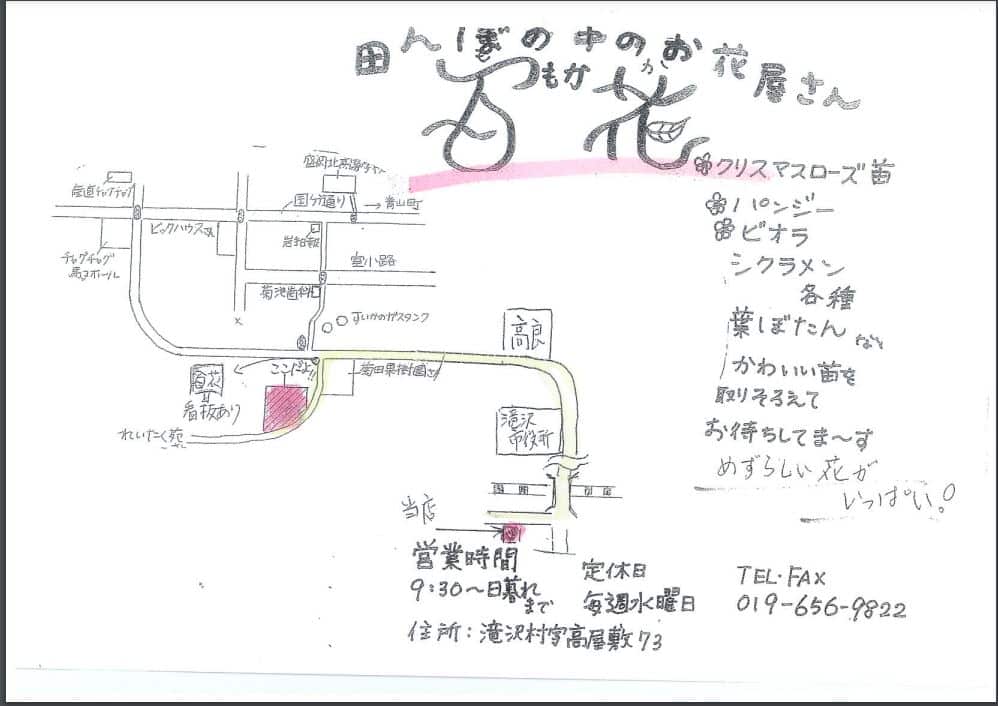 田んぼの中のお花屋さん
もも か
百花
クリスマスローズ苗
パンジー
ビオラ
シクラメン
各種
葉ぼたん など
かわいい苗を
取りそろえて
お待ちしてま〜す
めずらしい花が
いっぱい!
産直チャグチャグ
チャグチャグ
馬コホール
ビックハウスさん
国分通り
青山町
岩手日報
室小路
菊池歯科
すいかのガスタンク
高良
百花
看板あり
ここだよ!!
菊田果樹園さん
れいたく苑
さん
滝沢
市役所
当店
営業時間
9:30〜日暮れ
まで
定休日
毎週水曜日
TEL・FAX
019-656-9822
住所:滝沢村字高屋敷73